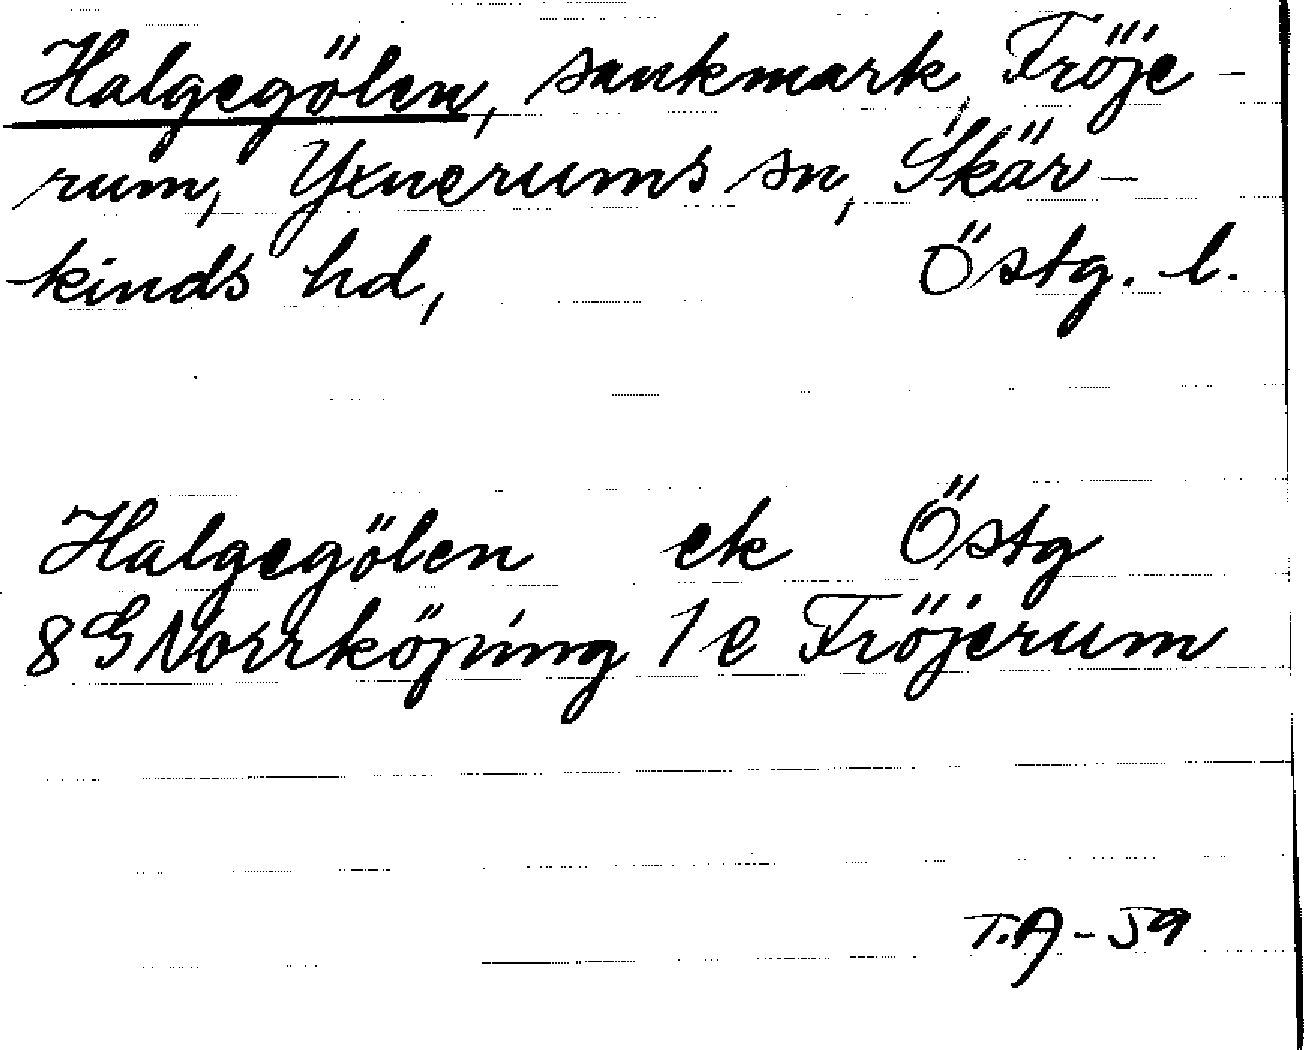 Halgegölen, sankmark, Fröje-
rum, Yxnerums sn, Skär-
kinds hd, Östg. l.
Halgegölen ek Östg
8 G Norrköping 1 e Fröjerum
T.A-59